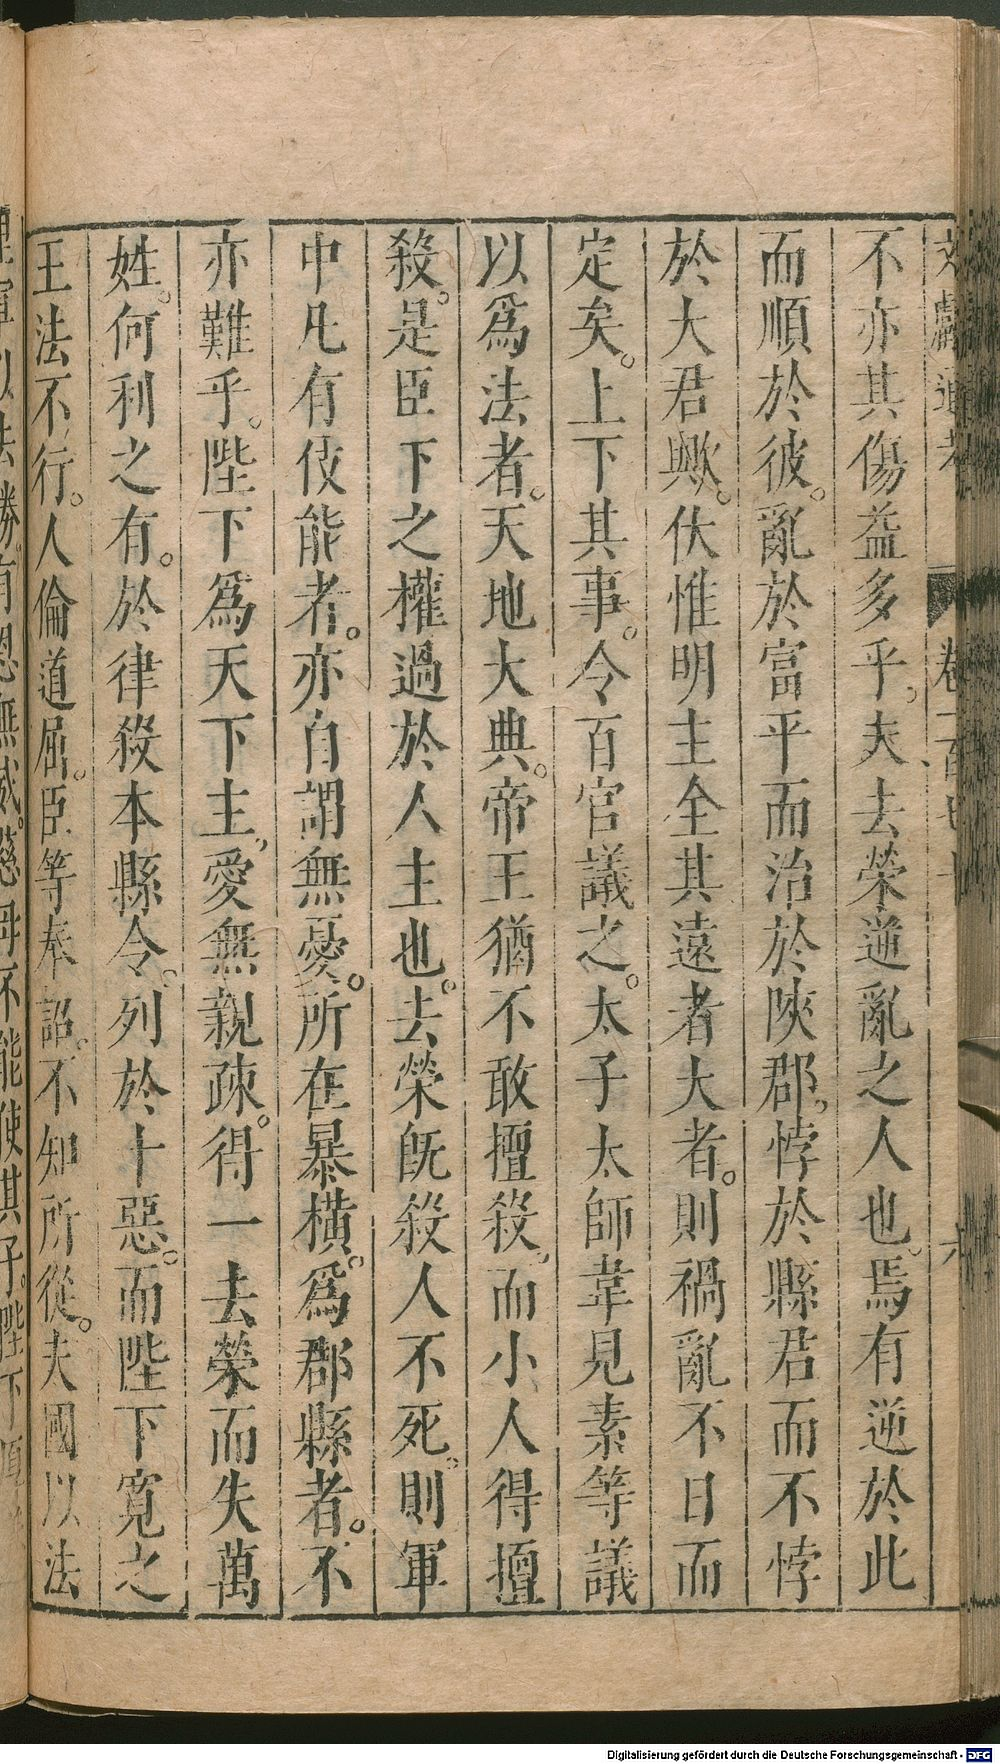 不亦其傷益多乎。夫去榮逆亂之人也。焉有逆於此
而順於彼。亂於富平而治於陝郡。悖於縣君而不悖
於大君歟。伏惟明主全其遠者大者。則禍亂不日而
定矣。上下其事。令百官議之。太子太師韋見素等議
以爲法者。天地大典。帝王猶不敢擅殺。而小人得擅
殺。是臣下之權過於人主也。去榮旣殺人不死。則軍
中凡有伎能者。亦自謂無憂。所在暴橫。爲郡縣者。不
亦難乎。陛下爲天下主，愛無親疎。得一去榮而失萬
姓。何利之有。於律殺本縣令。列於十惡。而陛下寛之
王法不行。人倫道屈。臣等奉詔。不知所從。夫國以法
以法勝。有恩無威。慈母不能使其子。陛下
Digitalisierung gefördert durch die Deutsche Forschungsgemeinschaft - DFG